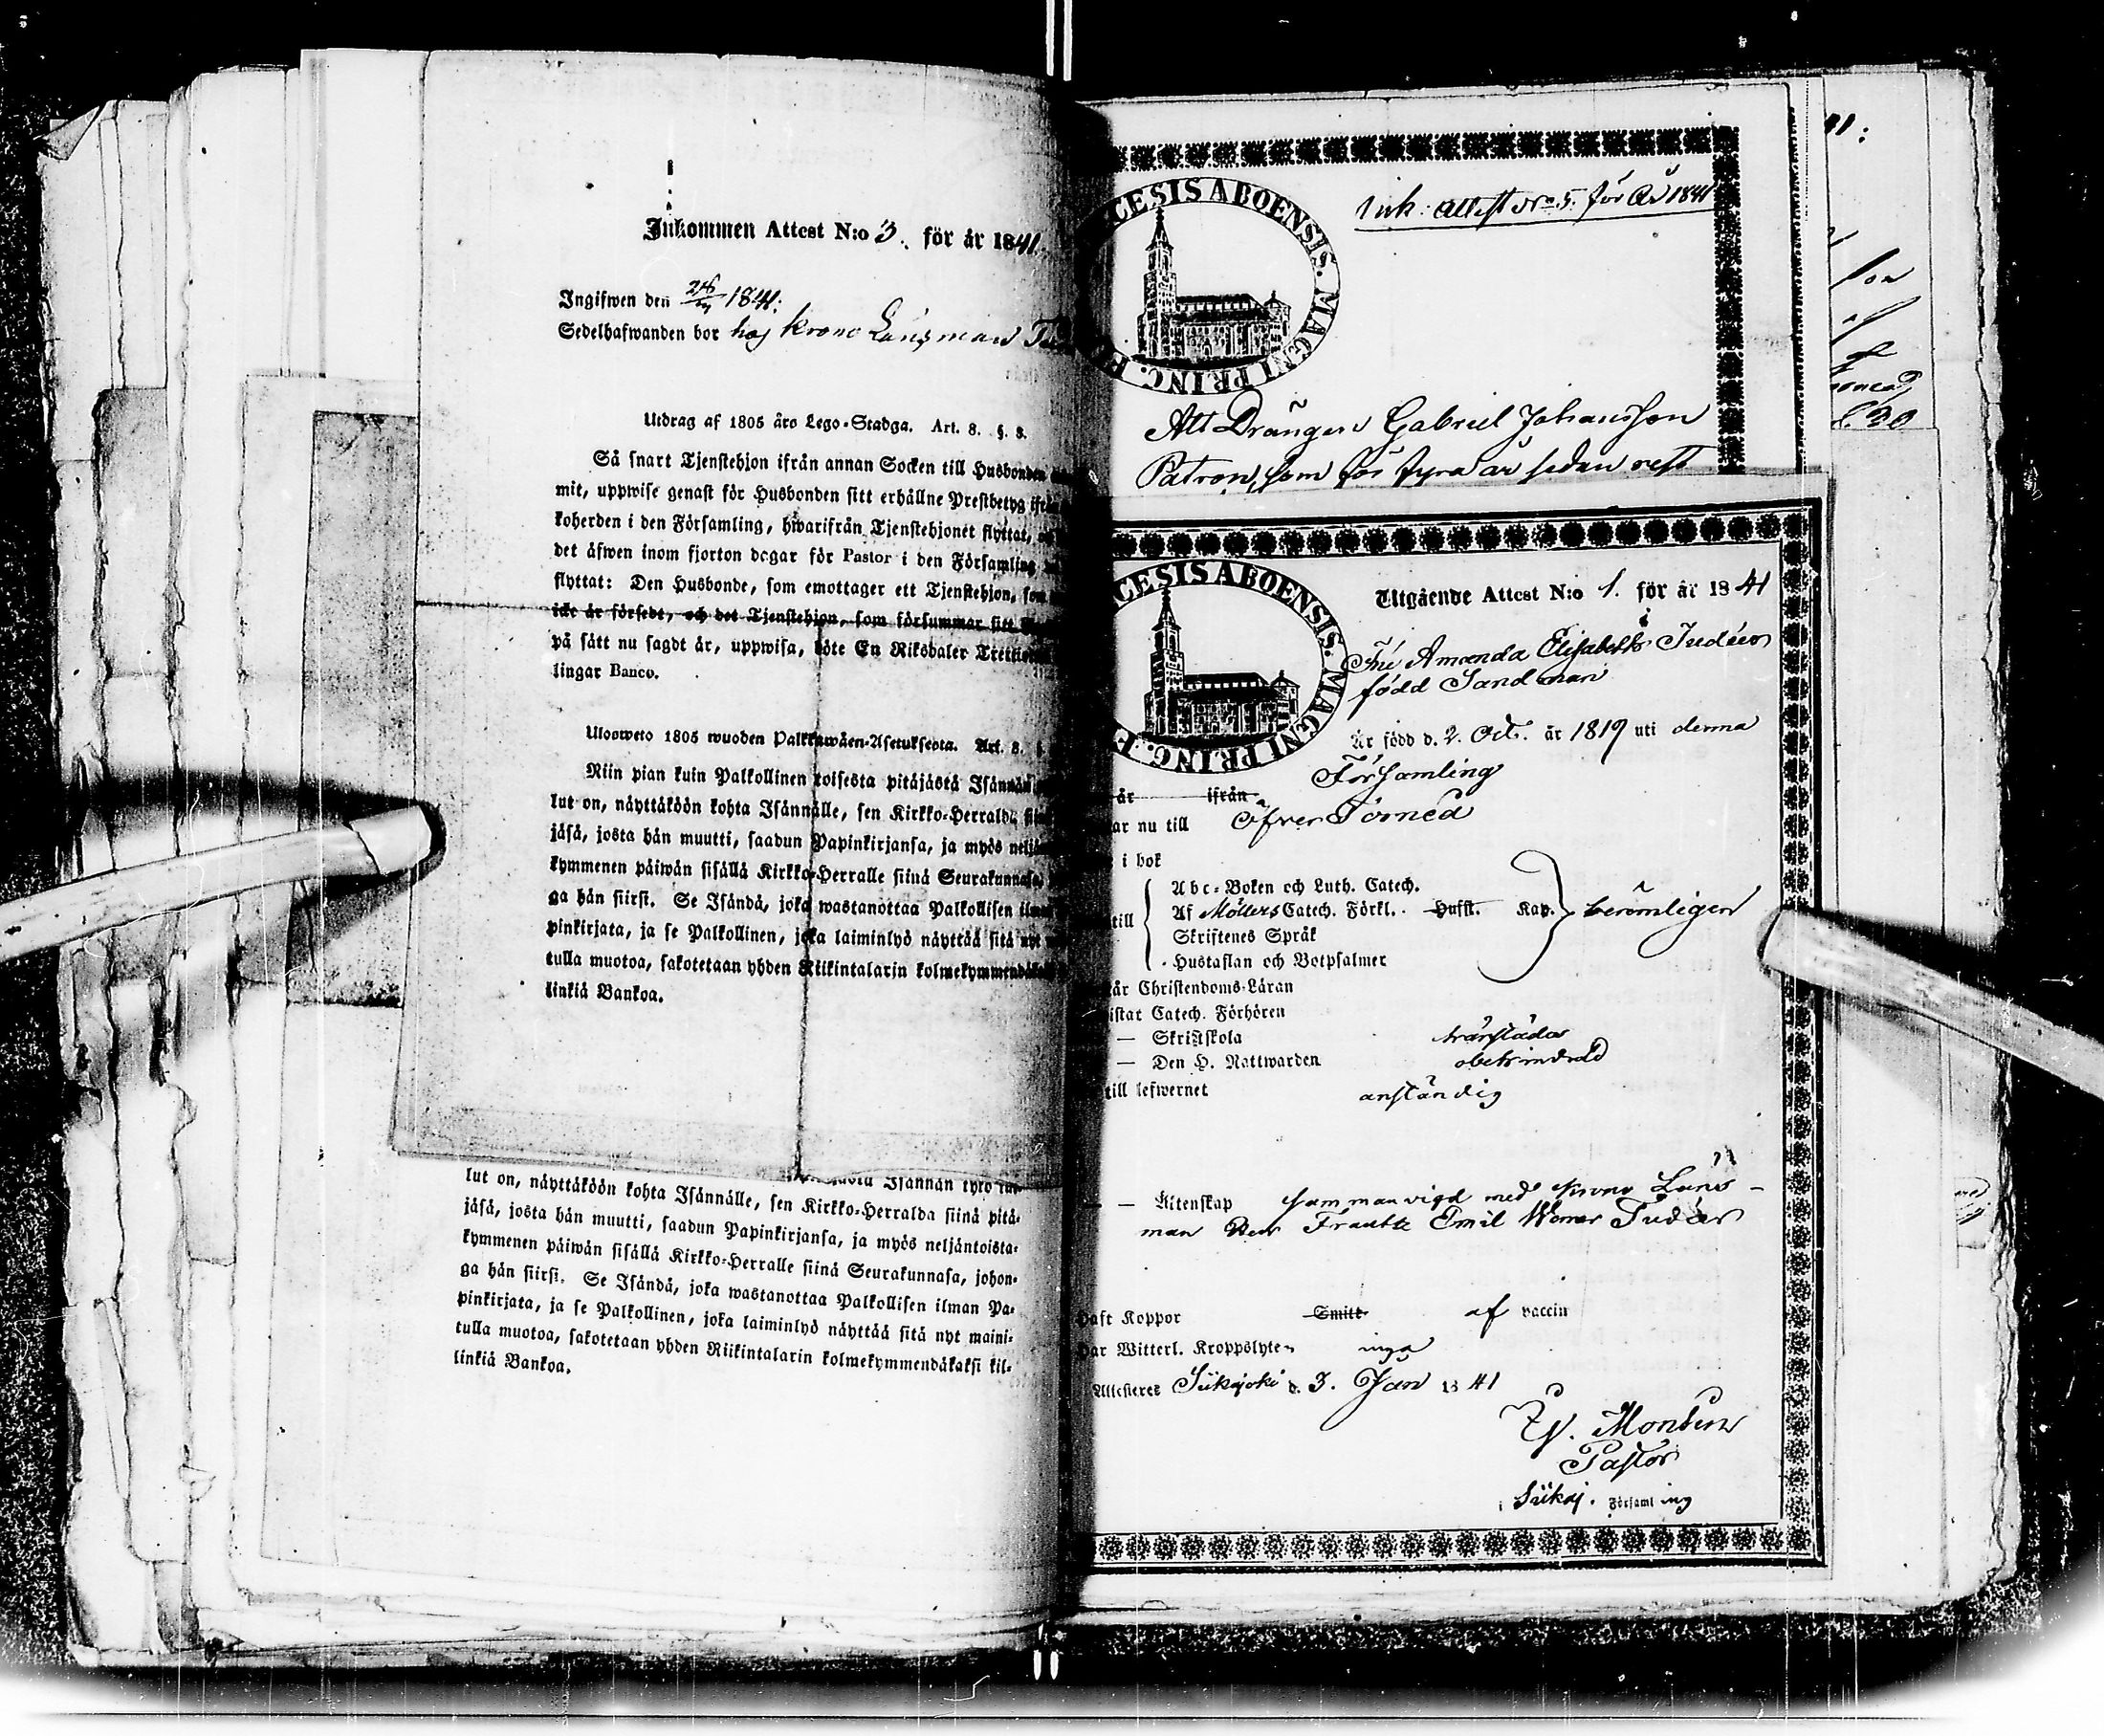 Inkommen Attest N:o 3. för år 1841.
Ingifwen den 26/ 1841:
Sedelhafwanden bor hoj krono Länsman
Utdrag af 1805 års Lego-Stadga. Art. 8. §. 8.
Så snart Tjenstehjon ifrån annan Socken till Husbonden
mit, uppwise genast för Husbonden sitt erhållne Prestbetyg ifrån
koherden i den Församling, hwarifrån Tjenstehjonet flyttat,
det äfwen inom fjorton dagar för Pastor i den Församling
flyttat: Den Husbonde, som emottager ett Tjenstehjon, som
icke är försedt, och det Tjenstehjon, som försummar sitt
på sätt nu sagdt är, uppwisa, böte En Riksdaler Trettio
lingar Banco.
Ulosweto 1805 wuoden Palkkawäen-Asetuksesta. Art. 8. §.
Niin pian kuin Palkollinen toisesta pitäjästä Isännän
lut on, näyttäköön kohta Isännälle, sen Kirkko-Herralda siinä
jäsä, josta hän muutti, saadun Papinkirjansa, ja myös neljän
kymmenen päiwän sisällä Kirkko-Herralle siinä Seurakunnasa,
ga hän siirsi. Se Isändä, joka wastanottaa Palkollisen ilman
pinkirjata, ja se Palkollinen, joka laiminlyö näyttää sitä nyt
tulla muotoa, sakotetaan yhden Riikintalarin kolmekymmendäkaksi
linkiä Bankoa.
Isännän tykö tul-
lut on, näyttäköön kohta Isännälle, sen Kirkko-Herralda siinä pitä-
jäsä, josta hän muutti, saadun Papinkirjansa, ja myös neljäntoista-
kymmenen päiwän sisällä Kirkko-Herralle siinä Seurakunnasa, johon-
ga hän siirsi. Se Isändä, joka wastanottaa Palkollisen ilman Pa-
pinkirjata, ja se Palkollinen, joka laiminlyö näyttää sitä nyt maini-
tulla muotoa, sakotetaan yhden Riikintalarin kolmekymmendäkaksi kil-
linkiä Bankoa.
CESIS ABOENSIS. MAGNI PRINC. F
Ink: Attest No 5. för År 1841
Att Drängen Gabriel Johansson
Patron, som för fyra år sedan rest
CESIS ABOENSIS. MAGNI PRINC. F
Utgående Attest N:o 1. för år 1841
Fru Amanda Elisabeth Tudéer
född Sandman
Är född d. 2. Oct. år 1819 uti denna
Församling
år ifrån
ar nu till Öfver Torneå
i bok
Abc-Boken och Luth. Catech.
till Af Möllers Catech. Förkl. Hufst. Kap. berömligen
Skriftenes Språk
Hustaflan och Botpsalmer
är Christendoms-Läran
istat Catech. Förhören
— Skriftskola härstädes
— Den H. Nattwarden obehindrad
till lefwernet anständig
— — Äktenskap sammanvigd med Krono Läns-
man Herr Frantz Emil Werner Tudeer
haft Koppor Smitt af vaccin
har Witterl. Kroppslyten inga
Attesteres Siikajoki d. 3. Jan 1841
Pastor
i Siikaj. Församling